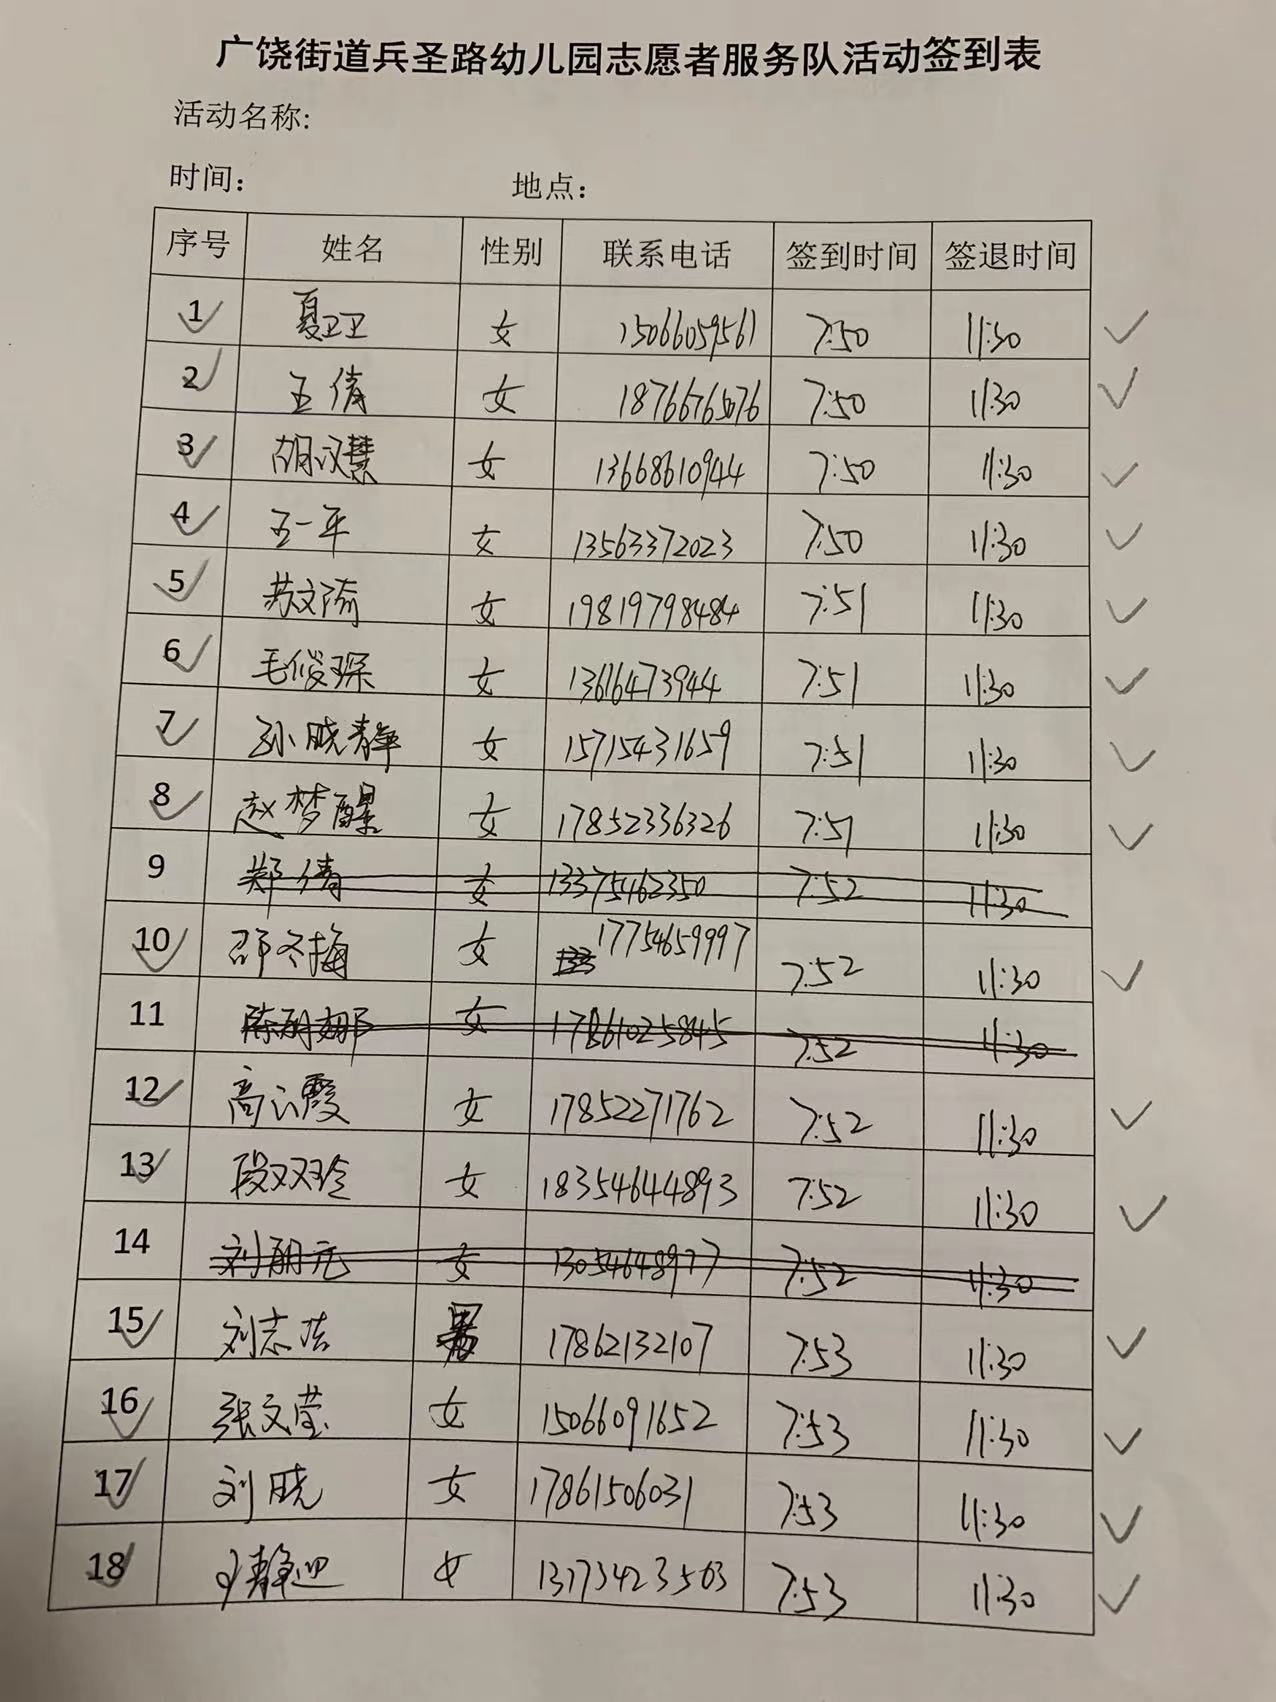 广饶街道兵圣路幼儿园志愿者服务队活动签到表
活动名称:
时间: 地点:
序号 姓名 性别 联系电话 签到时间 签退时间
1 夏卫卫 女 15066059561 7:50 11:30
2 王倩 女 18766765076 7:50 11:30
3 胡汉慧 女 13668610944 7:50 11:30
4 王一平 女 13563372023 7:50 11:30
5 苏文瑜 女 19819798484 7:51 11:30
6 毛俊琛 女 13616473944 7:51 11:30
7 孙晓静 女 15715431659 7:51 11:30
8 赵梦醒 女 17852336326 7:51 11:30
9 郑倩 女 13375462350 7:52 11:30
10 邵冬梅 女 17754659997 7:52 11:30
11 陈丽娜 女 17861025845 7:52 11:30
12 高云霞 女 17852271762 7:52 11:30
13 段双玲 女 18354644893 7:52 11:30
14 刘丽元 女 13054648977 7:52 11:30
15 刘志洁 男 17862132107 7:53 11:30
16 张文莹 女 15066091652 7:53 11:30
17 刘晓 女 17861506031 7:53 11:30
18 静迎 女 13173423503 7:53 11:30